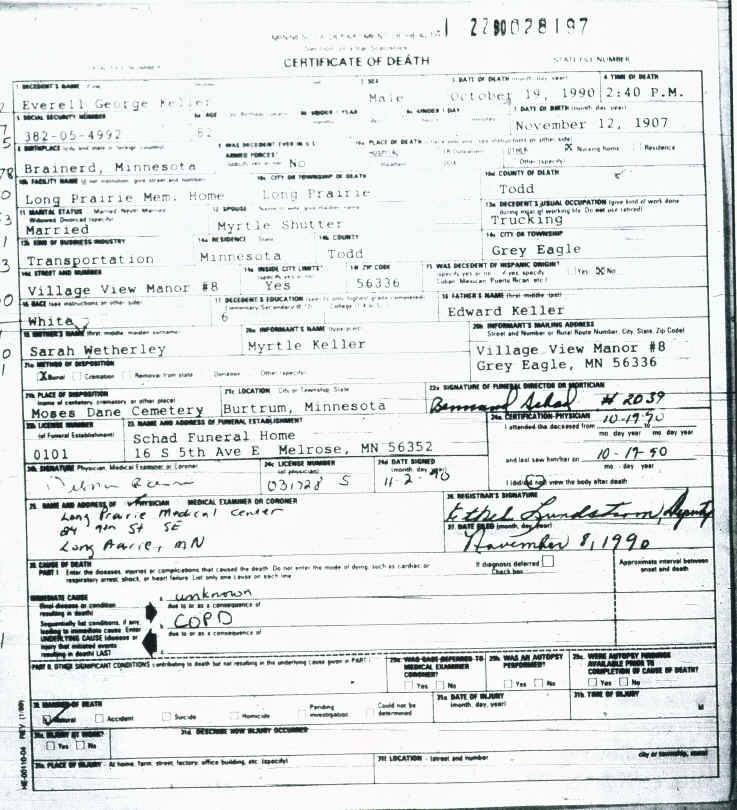 22 90 028197
MINNESOTA DEPARTMENT OF HEALTH
Section of Vital Statistics
CERTIFICATE OF DEATH
STATE FILE NUMBER
1 DECEDENT'S NAME
2 SEX
3 DATE OF DEATH (month, day, year)
4 TIME OF DEATH
Everell George Keller
Male
October 19, 1990
2:40 P.M.
5 SOCIAL SECURITY NUMBER
6a AGE
6b UNDER 1 YEAR
6c UNDER 1 DAY
7 DATE OF BIRTH (month, day, year)
382-05-4992
82
November 12, 1907
8 BIRTHPLACE (city and state or foreign country)
9 WAS DECEDENT EVER IN U.S. ARMED FORCES?
10a PLACE OF DEATH
Brainerd, Minnesota
No
X Nursing home
Residence
Other (specify)
10b FACILITY NAME (if not institution, give street and number)
10c CITY OR TOWNSHIP OF DEATH
10d COUNTY OF DEATH
Long Prairie Mem. Home
Long Prairie
Todd
11 MARITAL STATUS Married Never Married Widowed Divorced (specify)
12 SPOUSE
13a DECEDENT'S USUAL OCCUPATION (give kind of work done during most of working life. Do not use retired)
Married
Myrtle Shutter
Trucking
13b KIND OF BUSINESS INDUSTRY
14a RESIDENCE State
14b COUNTY
14c CITY OR TOWNSHIP
Transportation
Minnesota
Todd
Grey Eagle
14d STREET AND NUMBER
14e INSIDE CITY LIMITS?
14f ZIP CODE
15 WAS DECEDENT OF HISPANIC ORIGIN?
Yes X No
Village View Manor #8
Yes
56336
16 RACE (see instructions on other side)
17 DECEDENT'S EDUCATION (specify only highest grade completed)
18 FATHER'S NAME (first, middle, last)
White
6
Edward Keller
19 MOTHER'S NAME (first, middle, maiden surname)
20a INFORMANT'S NAME (type/print)
20b INFORMANT'S MAILING ADDRESS
Street and Number or Rural Route Number, City, State, Zip Code)
Sarah Wetherley
Myrtle Keller
Village View Manor #8
Grey Eagle, MN 56336
21a METHOD OF DISPOSITION
X Burial Cremation Removal from state Donation Other (specify)
21b PLACE OF DISPOSITION (name of cemetery, crematory or other place)
21c LOCATION City or Township, State
22a SIGNATURE OF FUNERAL DIRECTOR OR MORTICIAN
Moses Dane Cemetery
Burtrum, Minnesota
Schad # 2039
22b LICENSE NUMBER (of Funeral Establishment)
23 NAME AND ADDRESS OF FUNERAL ESTABLISHMENT
24a CERTIFICATION-PHYSICIAN
I attended the deceased from
10-19-90
mo. day year to mo. day year
0101
Schad Funeral Home
16 S 5th Ave E Melrose, MN 56352
and last saw him/her on 10-19-90
mo. day year
24b SIGNATURE Physician, Medical Examiner or Coroner
24c LICENSE NUMBER (of physician)
24d DATE SIGNED (month, day, year)
031728 S
11-2-90
I (did) (did not) view the body after death
25 NAME AND ADDRESS OF PHYSICIAN MEDICAL EXAMINER OR CORONER
Long Prairie Medical Center
24 9th St SE
Long Prairie, MN
26 REGISTRAR'S SIGNATURE
Ethel Lundstrom, Deputy
27 DATE FILED (month, day, year)
November 8, 1990
28 CAUSE OF DEATH
PART I Enter the diseases, injuries or complications that caused the death. Do not enter the mode of dying, such as cardiac or respiratory arrest, shock, or heart failure. List only one cause on each line.
If diagnosis deferred Check box
Approximate interval between onset and death
IMMEDIATE CAUSE (final disease or condition resulting in death)
a unknown
due to or as a consequence of
Sequentially list conditions, if any, leading to immediate cause. Enter UNDERLYING CAUSE (disease or injury that initiated events resulting in death) LAST
b COPD
due to or as a consequence of
c
PART II OTHER SIGNIFICANT CONDITIONS contributing to death but not resulting in the underlying cause given in PART I
29a WAS CASE REFERRED TO MEDICAL EXAMINER CORONER?
Yes No
29b WAS AN AUTOPSY PERFORMED?
Yes No
29c WERE AUTOPSY FINDINGS AVAILABLE PRIOR TO COMPLETION OF CAUSE OF DEATH?
Yes No
30 MANNER OF DEATH
Natural Accident Suicide Homicide Pending investigation Could not be determined
31a DATE OF INJURY (month, day, year)
31b TIME OF INJURY
M
31c INJURY AT WORK?
Yes No
31d DESCRIBE HOW INJURY OCCURRED
31e PLACE OF INJURY - At home, farm, street, factory, office building, etc. (specify)
31f LOCATION - (street and number
city or township, state)
HE-00110-04 REV. (1/89)